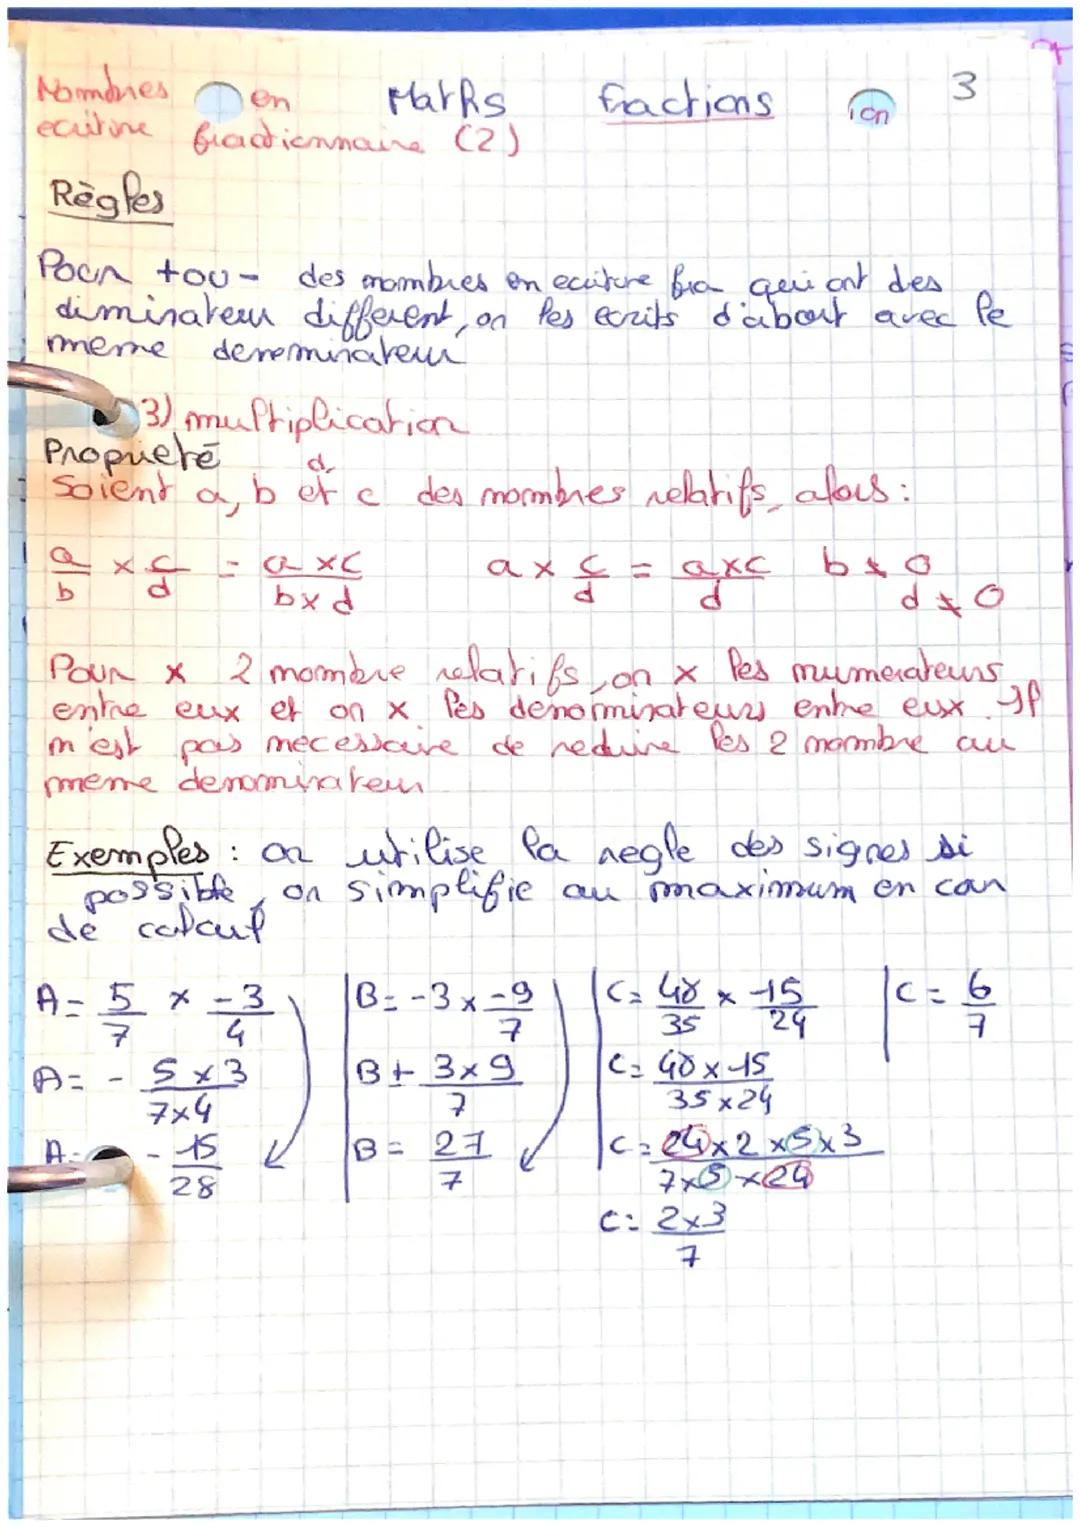 Nombres en Maths fractions ion 3
ecriture fractionnaire (2)
Règles
Pour + ou - des nombres en ecriture fra qui ont des
diminateur different, on les ecrits d'abort avec le
meme denominateur
3) multiplication
Proprieté
d,
Soient a, b et c des nombres relatifs, alors :
a/b × c/d = a×c/b×d a × c/d = a×c/d b ≠ 0
d ≠ 0
Pour × 2 nombre relatifs, on × les numerateurs
entre eux et on × les denorminateurs entre eux. Il
n'est pas necessaire de reduire les 2 nombre au
meme denominateur
Exemples : on utilise la regle des signes si
possible, on simplifie au maximum en cour
de calcul
A= 5/7 × -3/4
A= - 5×3/7×4
A= - 15/28
B= -3 × -9/7
B+ 3×9/7
B= 27/7
C= 48/35 × -15/24
C= 48×-15/35×24
C= 24×2×5×3/7×5×24
C= 2×3/7
C= 6/7